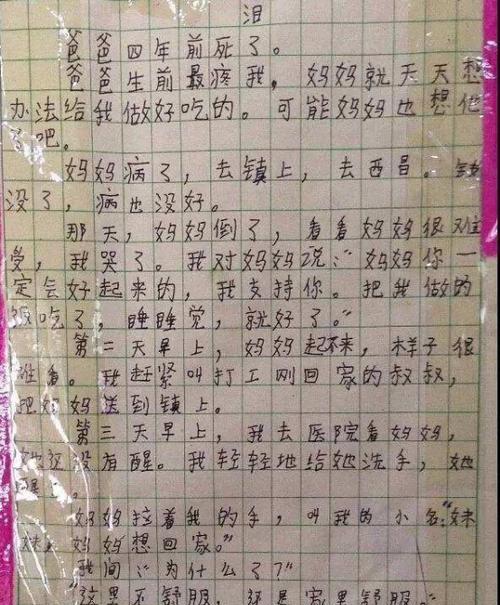 泪
爸爸四年前死了。
爸爸生前最疼我，妈妈就天天想
办法给我做好吃的。可能妈妈也想他
了吧。
妈妈病了，去镇上，去西昌。钱
没了，病也没好。
那天，妈妈倒了，看看妈妈很难
受，我哭了。我对妈妈说：“妈妈你一
定会好起来的，我支持你。把我做的
饭吃了，睡睡觉，就好了。”
第二天早上，妈妈起不来，样子很
难看。我赶紧叫打工刚回家的叔叔，
把妈妈送到镇上。
第三天早上，我去医院看妈妈，
她还没有醒。我轻轻地给她洗手，她
醒上。
妈妈拉着我的手，叫我的小名：“妹
妹，妈妈想回家。”
我问：“为什么了？”
“这里不舒服，还是家里舒服。”